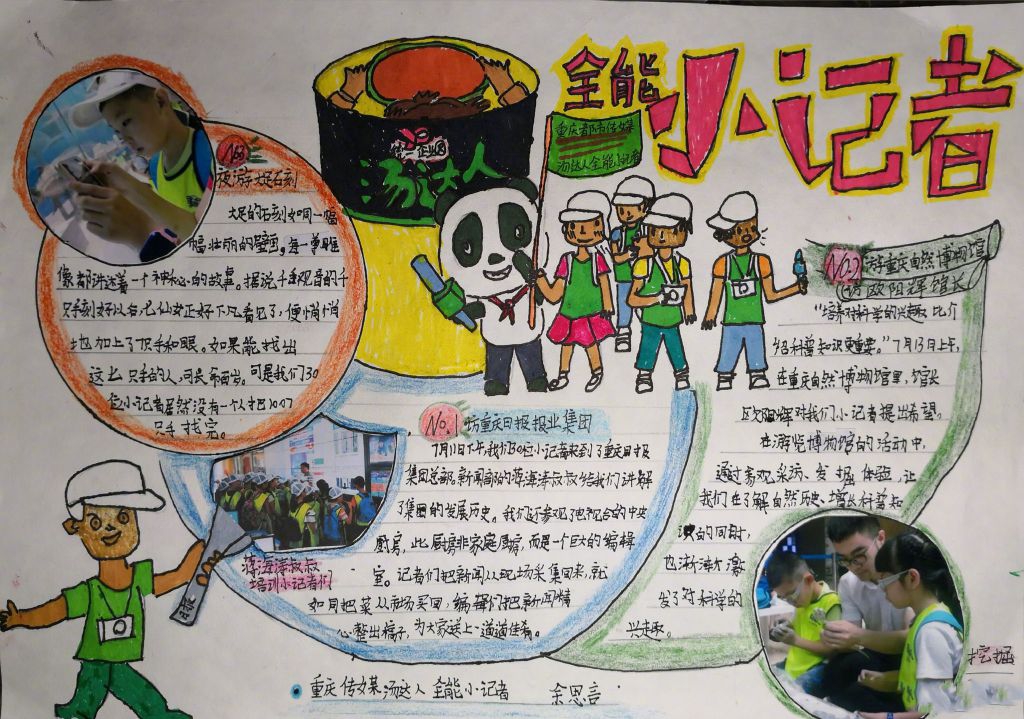 全能小记者
重庆都市传媒
汤达人全能小记者
统一企业
汤达人
No.3
夜游大足石刻
大足的石刻如同一幅
幅壮丽的壁画。每一尊雕
像都讲述着一个神秘的故事。据说千手观音的千
只手刻好以后,七仙女正好下凡看见了,便悄悄
地加上了7只手和眼。如果能找出
这七只手的人,可长寿百岁。可是我们30
位小记者居然没有一个人把1007
只手找完。
No.1 访重庆日报报业集团
7月11日下午,我们30位小记者来到了重庆日报
集团总部,新闻部的蒋海涛叔叔给我们讲解
了集团的发展历史。我们还参观了电视台的中央
厨房,此厨房非家庭厨房,而是一个巨大的编辑
室。记者们把新闻从现场采集回来,就
如同把菜从市场买回,编辑们把新闻精
心整出稿子,为大家送上一道道佳肴。
蒋海涛叔叔
培训小记者们
No.2 游重庆自然博物馆
访欧阳辉馆长
“培养对科学的兴趣比介
绍科普知识更重要。”7月13日上午,
在重庆自然博物馆里,馆长
欧阳辉对我们小记者提出希望。
在游览博物馆的活动中,
通过参观、采访、发掘体验,让
我们在了解自然历史、增长科普知
识的同时,
也渐渐激
发了对科学的
兴趣。
挖掘
重庆传媒汤达人全能小记者 余思言